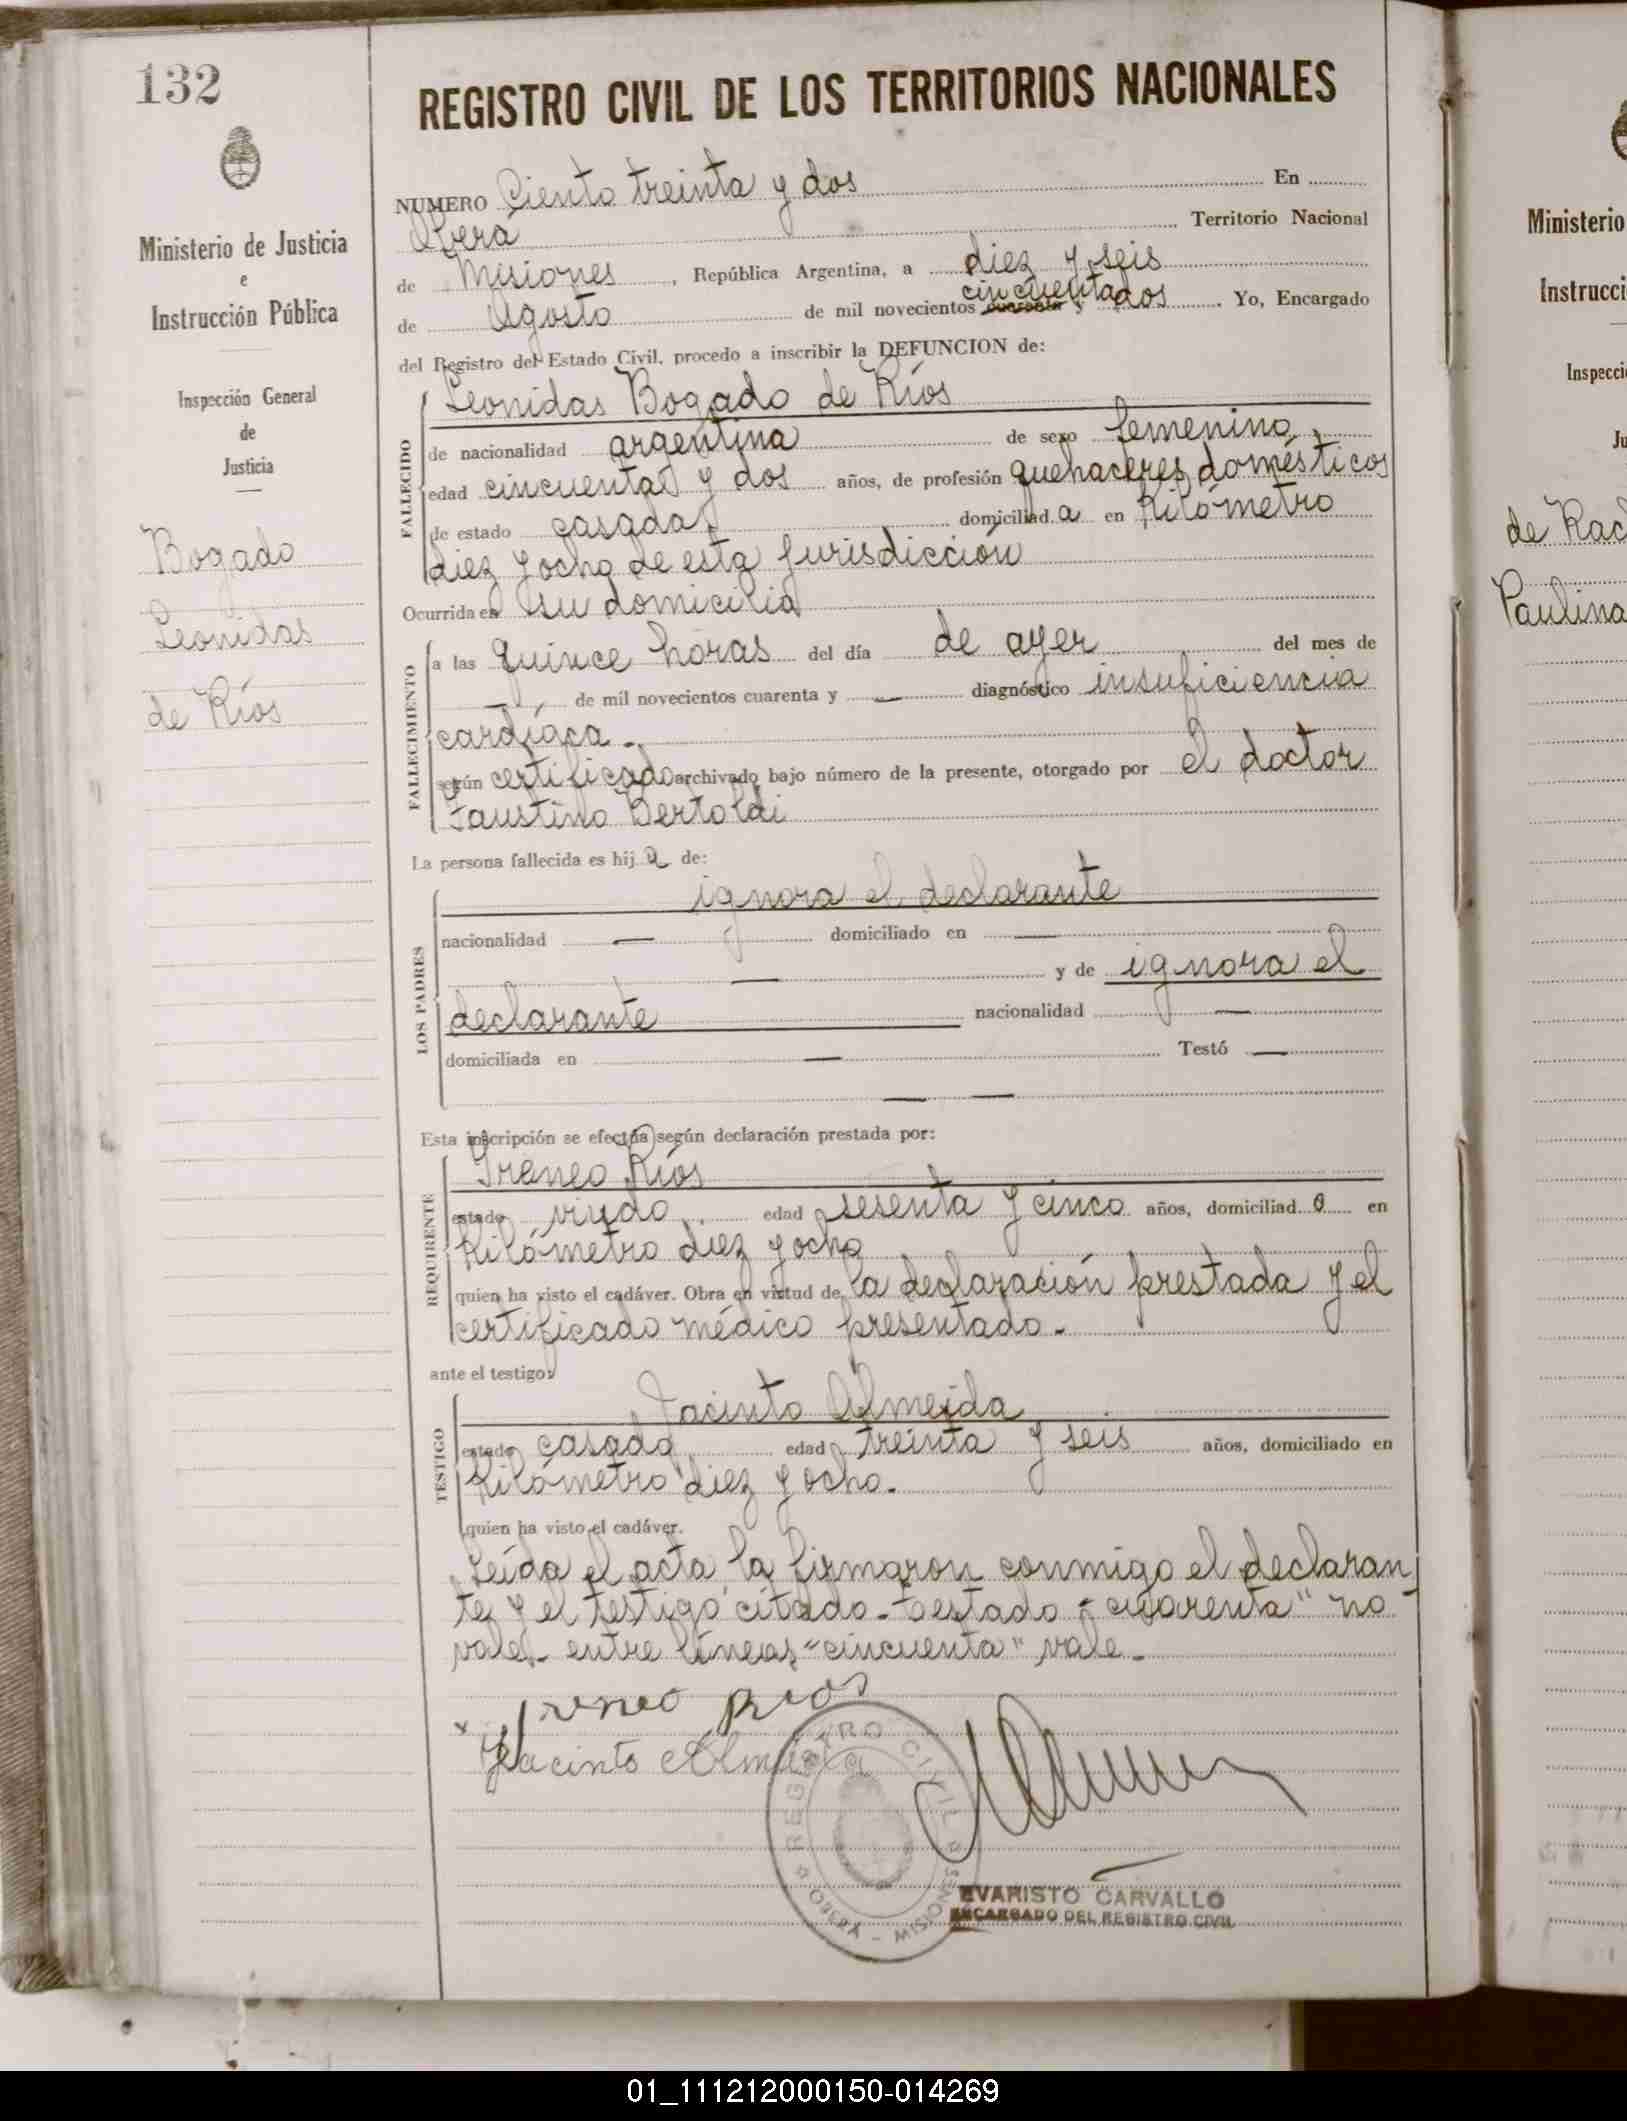 132
Ministerio de Justicia
e
Instrucción Pública
Inspección General
de
Justicia
Bogado
Leonidas
de Ríos
REGISTRO CIVIL DE LOS TERRITORIOS NACIONALES
NUMERO Ciento treinta y dos En
Oberá Territorio Nacional
de Misiones, República Argentina, a diez y seis
cincuenta
de Agosto de mil novecientos cuarenta y dos. Yo, Encargado
del Registro del Estado Civil, procedo a inscribir la DEFUNCION de:
FALLECIDO
Leonidas Bogado de Ríos
de nacionalidad argentina de sexo femenino,
edad cincuenta y dos años, de profesión quehaceres domésticos
de estado casada, domiciliada en Kilómetro
diez y ocho de esta jurisdicción
Ocurrida en su domicilio
FALLECIMIENTO
a las quince horas del día de ayer del mes de
— de mil novecientos cuarenta y — diagnóstico insuficiencia
cardíaca.-
según certificado archivado bajo número de la presente, otorgado por el doctor
Faustino Bertoldi
La persona fallecida es hija de:
LOS PADRES
ignora el declarante
nacionalidad — domiciliado en —
— y de ignora el
declarante nacionalidad —
domiciliada en — Testó —
— —
Esta inscripción se efectúa según declaración prestada por:
REQUIRENTE
Ireneo Ríos
estado viudo edad sesenta y cinco años, domiciliado en
Kilómetro diez y ocho
quien ha visto el cadáver. Obra en virtud de la declaración prestada y el
certificado médico presentado.-
ante el testigo:
TESTIGO
Jacinto Almeida
estado casado edad treinta y seis años, domiciliado en
Kilómetro diez y ocho.-
quien ha visto el cadáver.
Leída el acta, la firmaron conmigo el declaran
te y el testigo citado.- Testado - "cuarenta" no
vale.- entre líneas "cincuenta" vale.-
x Ireneo Rios
Jacinto Almeida
REGISTRO CIVIL
OBERA - MISIONES
EVARISTO CARVALLO
ENCARGADO DEL REGISTRO CIVIL
Ministerio
Instrucci
Inspecci
Ju
de Rac
Paulina
01_111212000150-014269